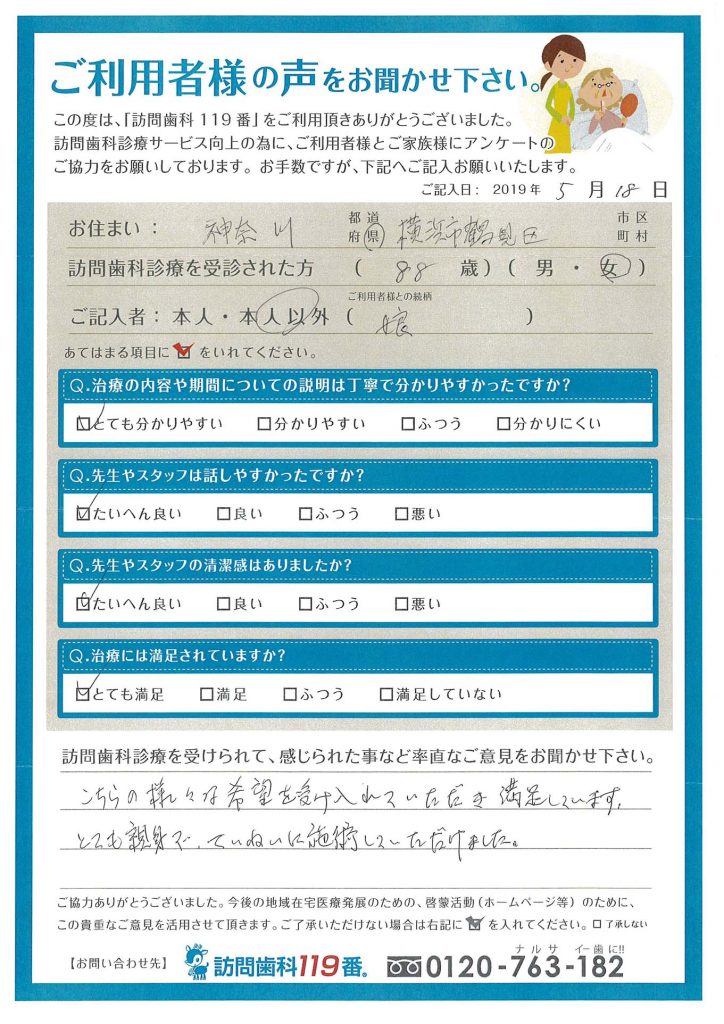 ご利用者様の声をお聞かせ下さい。
この度は、「訪問歯科119番」をご利用頂きありがとうございました。
訪問歯科診療サービス向上の為に、ご利用者様とご家族様にアンケートの
ご協力をお願いしております。お手数ですが、下記へご記入お願いいたします。
ご記入日： 2019年 5月18日
お住まい： 神奈川 都道府県 横浜市鶴見区 市区町村
訪問歯科診療を受診された方 （ 88 歳）（ 男 ・ 女 ）
ご利用者様との続柄
ご記入者：本人・本人以外（ 娘 ）
あてはまる項目に☑をいれてください。
Q.治療の内容や期間についての説明は丁寧で分かりやすかったですか？
☑とても分かりやすい □分かりやすい □ふつう □分かりにくい
Q.先生やスタッフは話しやすかったですか？
☑たいへん良い □良い □ふつう □悪い
Q.先生やスタッフの清潔感はありましたか？
☑たいへん良い □良い □ふつう □悪い
Q.治療には満足されていますか？
☑とても満足 □満足 □ふつう □満足していない
訪問歯科診療を受けられて、感じられた事など率直なご意見をお聞かせ下さい。
こちらの様々な希望を受け入れていただき満足しています。
とても親身で、ていねいに施術していただけました。
ご協力ありがとうございました。今後の地域在宅医療発展のための、啓蒙活動（ホームページ等）のために、
この貴重なご意見を活用させて頂きます。ご了承いただけない場合は右記に☑を入れてください。□了承しない
ナルサ イー歯に!!
【お問い合わせ先】 訪問歯科119番。 0120-763-182